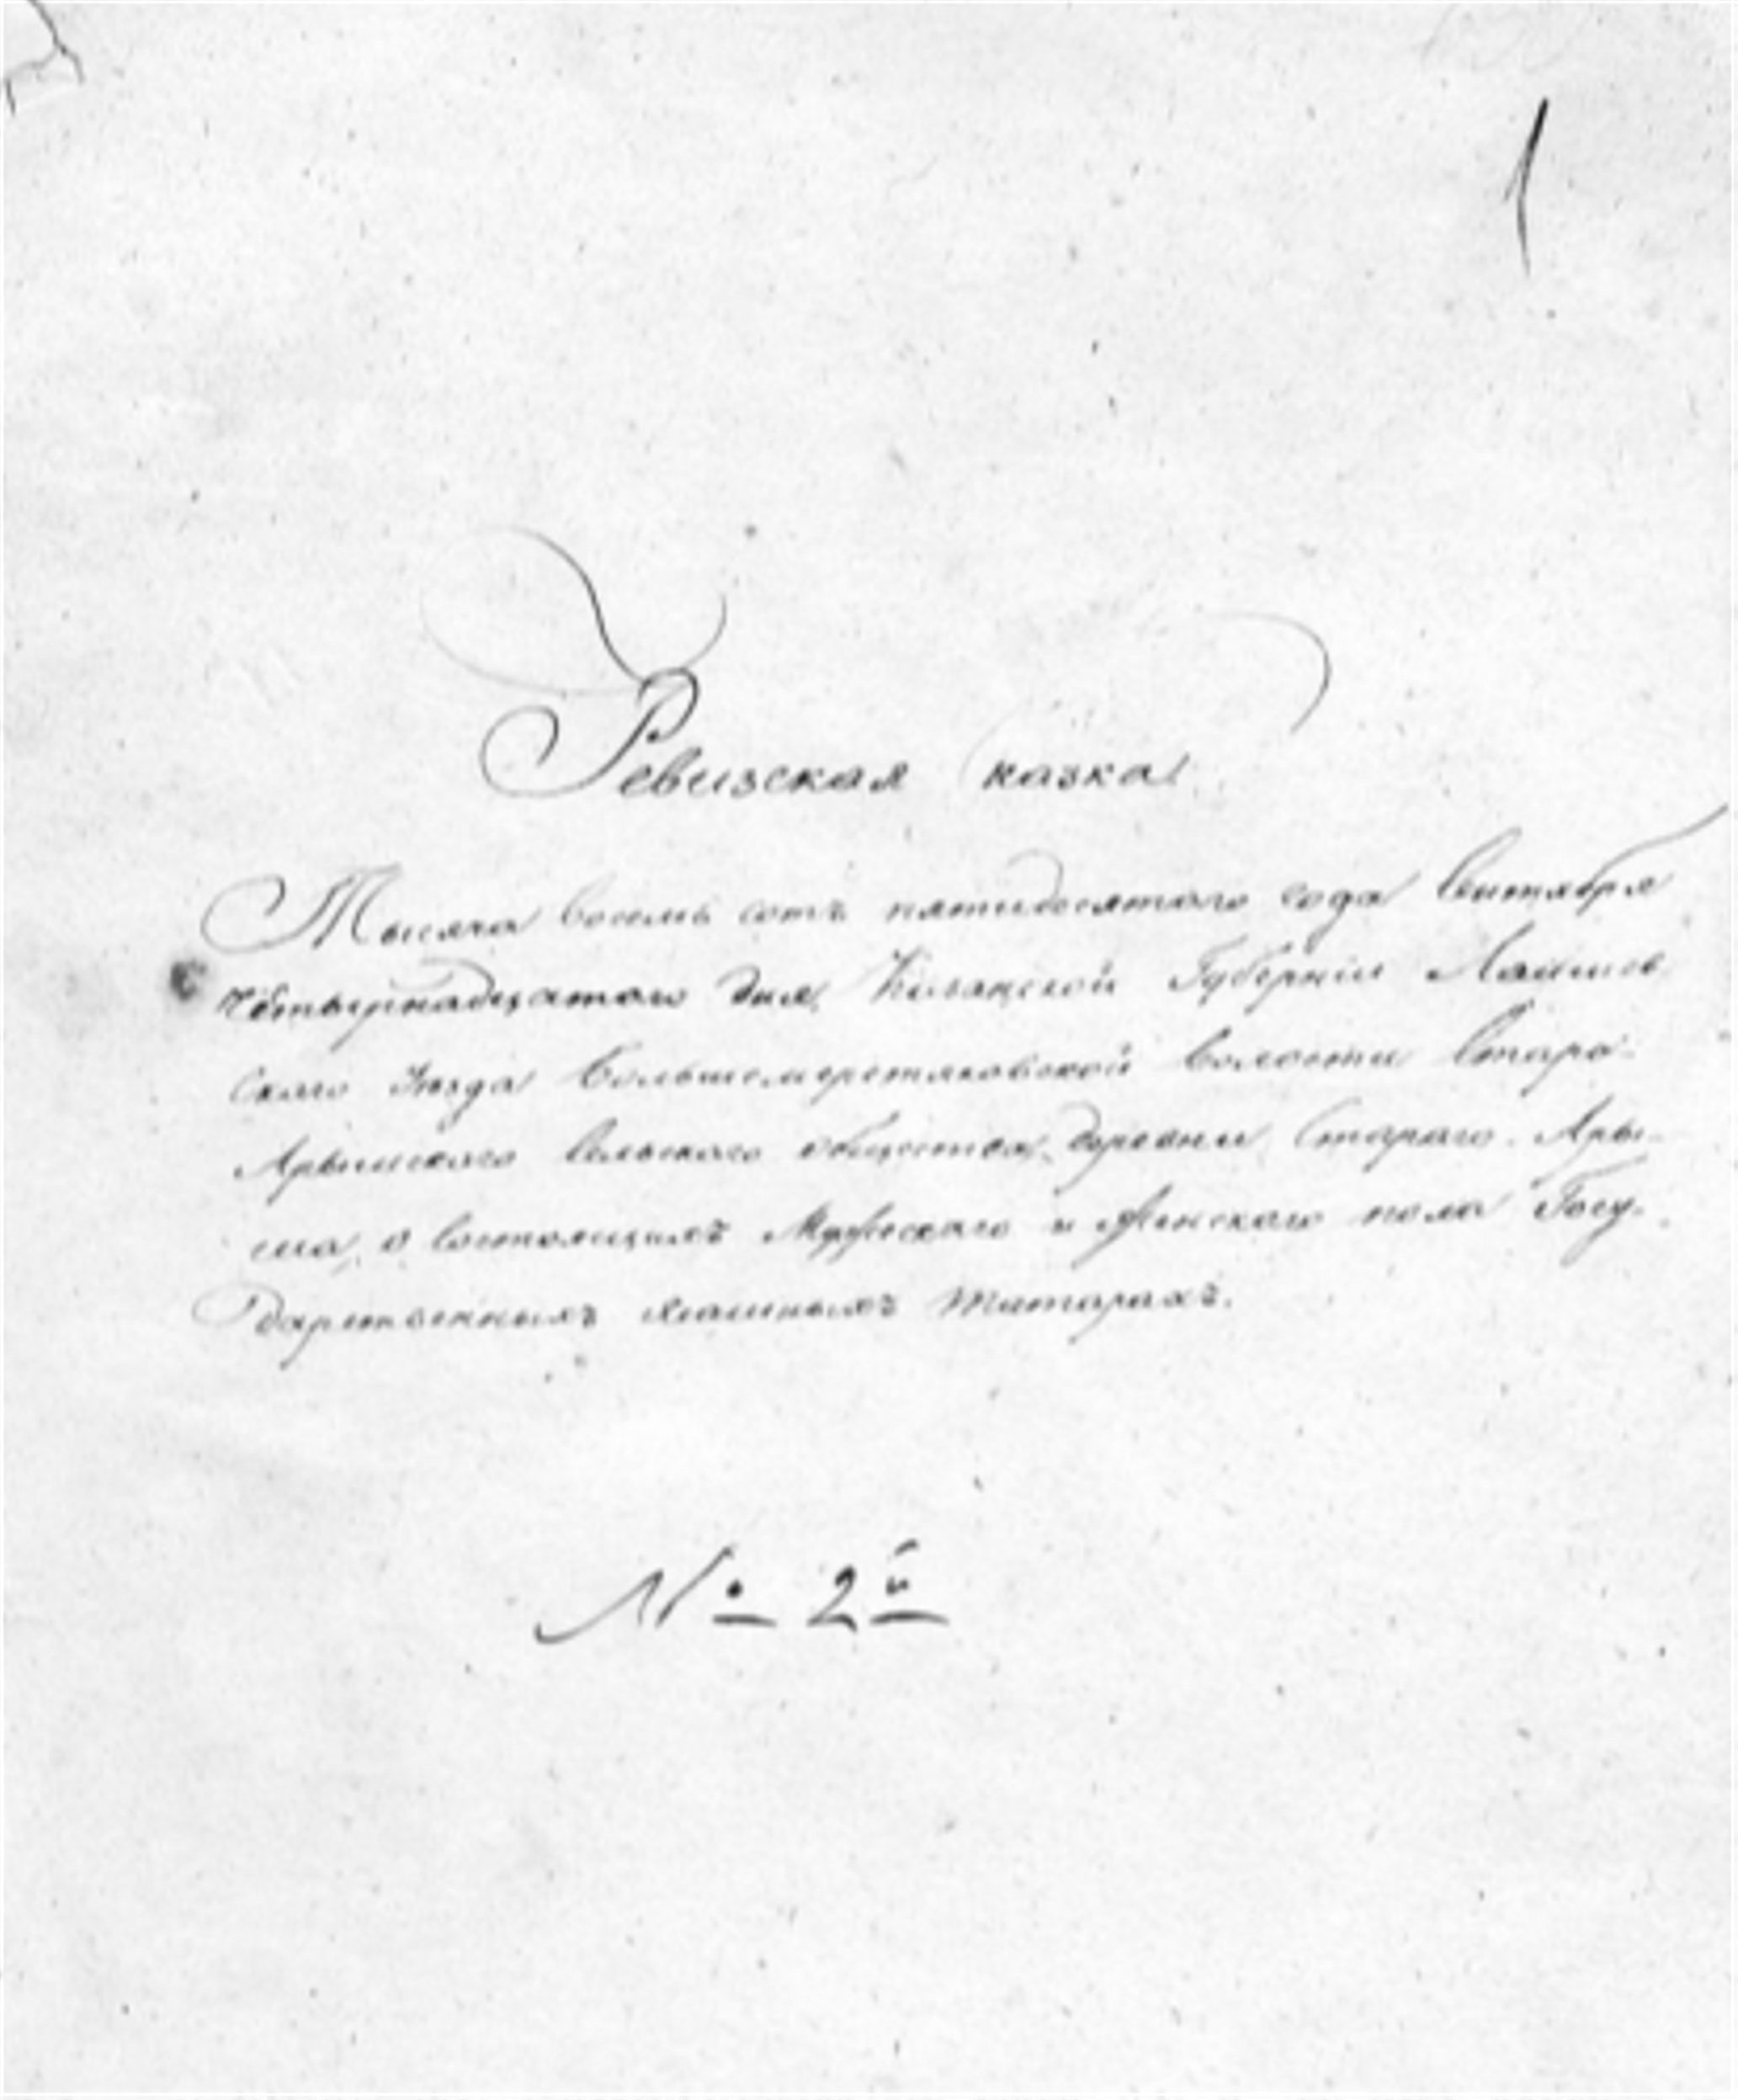 1
Ревизская Сказка
Тысяча восемь сотъ пятидесятого года Сентября
четырнадцатого дня, Казанской Губернии Лаишев
скаго Уезда Большемеретяковской волости Старо-
Арышскаго Сельскаго общества, деревни Стараго Ары-
ша, о состоящихъ Мужескаго и Женскаго пола Госу-
дарственныхъ ясашныхъ Татарахъ.
№ 2й